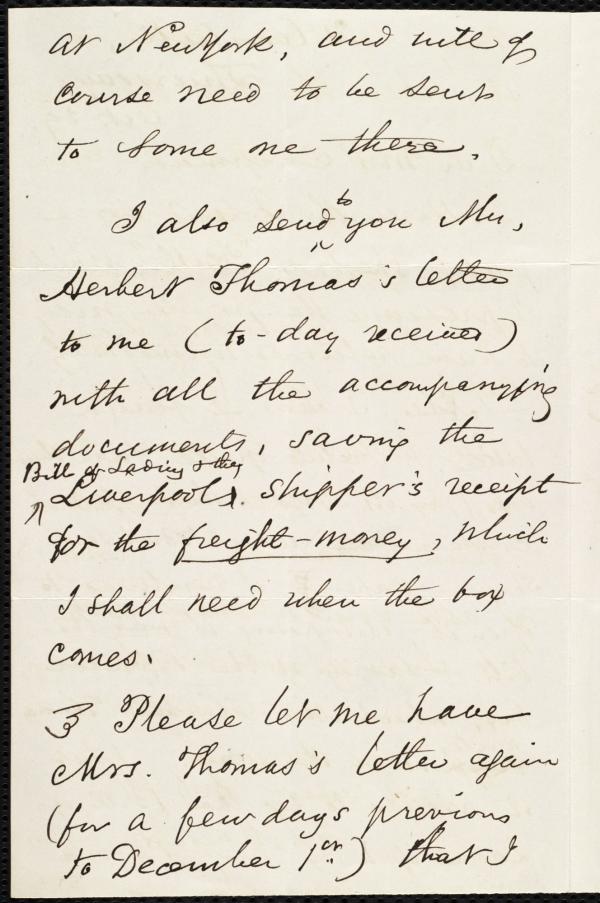 at New York, and will of
course need to be sent
to some one there.
I also send to you Mr.
Herbert Thomas's letter
to me (to-day received)
with all the accompanying
documents, saving the
Bill of Lading & the
Liverpool shipper's receipt
for the freight-money, which
I shall need when the box
comes.
Please let me have
Mrs. Thomas's letter again
(for a few days previous
to December 1st) that I